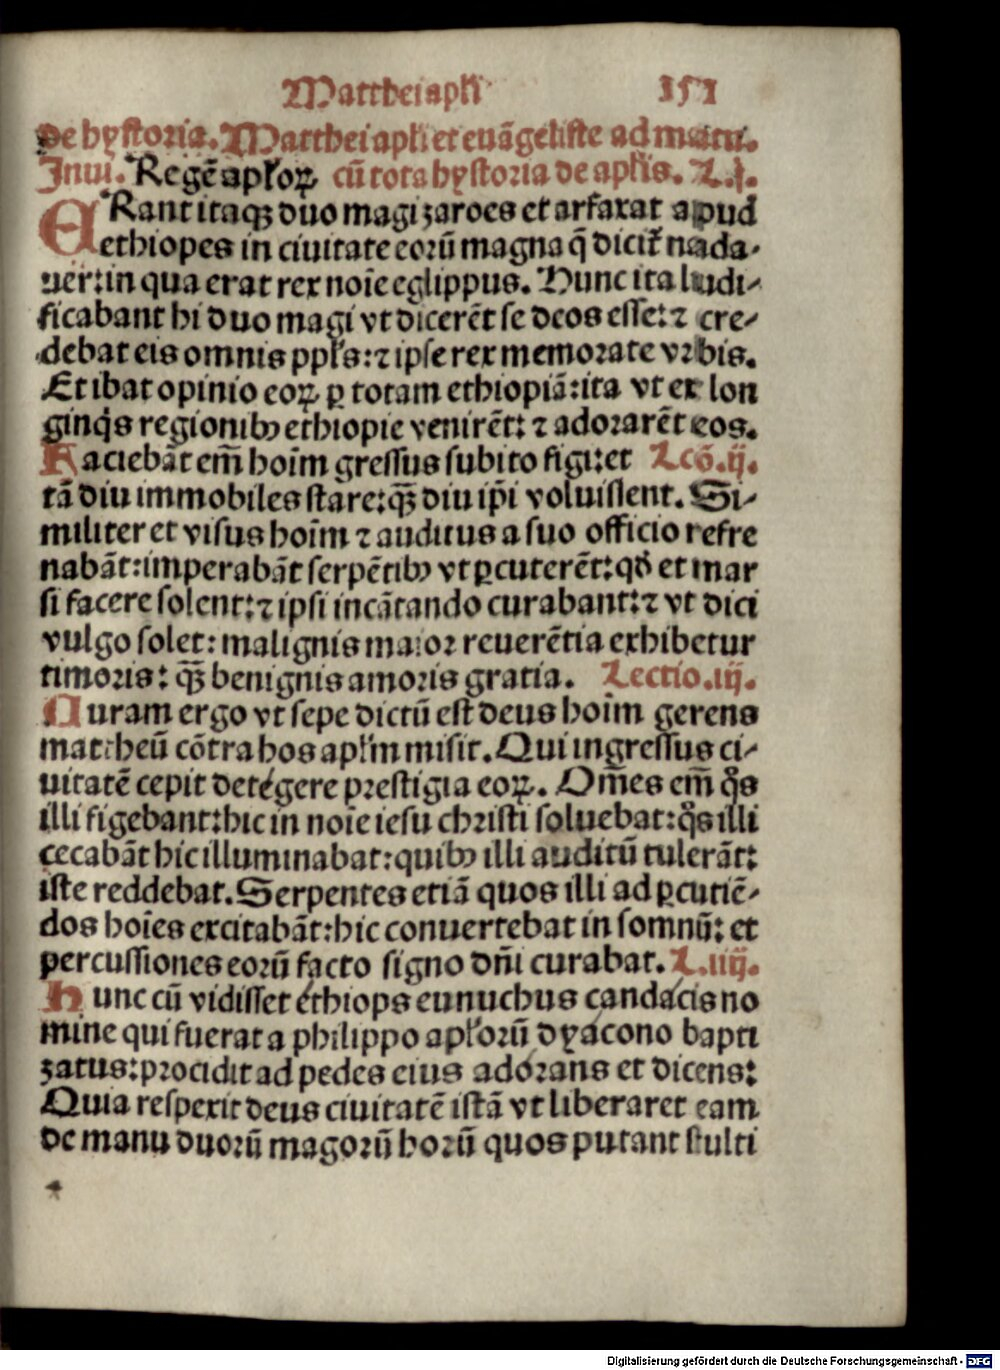 Matthei apłi 151
De hystoria. Matthei apłi et euāgeliste ad matu.
Inui. Regē apłoꝝ cū tota hystoria de apłis. L.j.
ERant itaqꝫ duo magi zaroes et arfaxat apud
ethiopes in ciuitate eorū magna q̄ dicit̄ nada-
uer: in qua erat rex noīe eglippus. Hunc ita ludi-
ficabant hi duo magi vt dicerēt se deos esse: ⁊ cre-
debat eis omnis ppłs: ⁊ ipse rex memorate vrbis.
Et ibat opinio eoꝝ ꝑ totam ethiopiā: ita vt ex lon
ginq̄s regionibꝰ ethiopie venirēt: ⁊ adorarēt eos.
Faciebāt em̄ hoīm gressus subito figi: et Lcō.ij.
tā diu immobiles stare: qꝫ̄ diu ip̄i voluissent. Si-
militer et visus hoīm ⁊ auditus a suo officio refre
nabāt: imperabāt serpētibꝰ vt ꝑcuterēt: qđ et mar
si facere solent: ⁊ ipsi incātando curabant: ⁊ vt dici
vulgo solet: malignis maior reuerētia exhibetur
timoris: qꝫ̄ benignis amoris gratia. Lectio.iij.
Curam ergo vt sepe dictū est deus hoīm gerens
mattheū cōtra hos apłm misit. Qui ingressus ci-
uitatē cepit detegere prestigia eoꝝ. Om̄es em̄ q̄s
illi figebant: hic in noīe iesu christi soluebat: q̄s illi
cecabāt hic illuminabat: quibꝰ illi auditū tulerāt:
iste reddebat. Serpentes etiā quos illi ad ꝑcutiē-
dos hoīes excitabāt: hic conuertebat in somnū: et
percussiones eorū facto signo dn̄i curabat. L.iiij.
Hunc cū vidisset ethiops eunuchus candacis no
mine qui fuerat a philippo apłorū dyacono bapti
zatus: procidit ad pedes eius adorans et dicens:
Quia respexit deus ciuitatē istā vt liberaret eam
de manu duorū magorū horū quos putant stulti
Digitalisierung gefördert durch die Deutsche Forschungsgemeinschaft - DFG